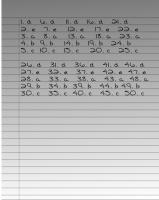 1. d 6. d 11. d 16. d 21. d
2. e 7. e 12. e 17. e 22. e
3. a 8. a 13. a 18. a 23. a
4. b 9. b 14. b 19. b 24. b
5. c 10. c 15. c 20. c 25. c
26. d 31. d 36. d 41. d 46. d
27. e 32. e 37. e 42. e 47. e
28. a 33. a 38. a 43. a 48. a
29. b 34. b 39. b 44. b 49. b
30. c 35. c 40. c 45. c 50. c